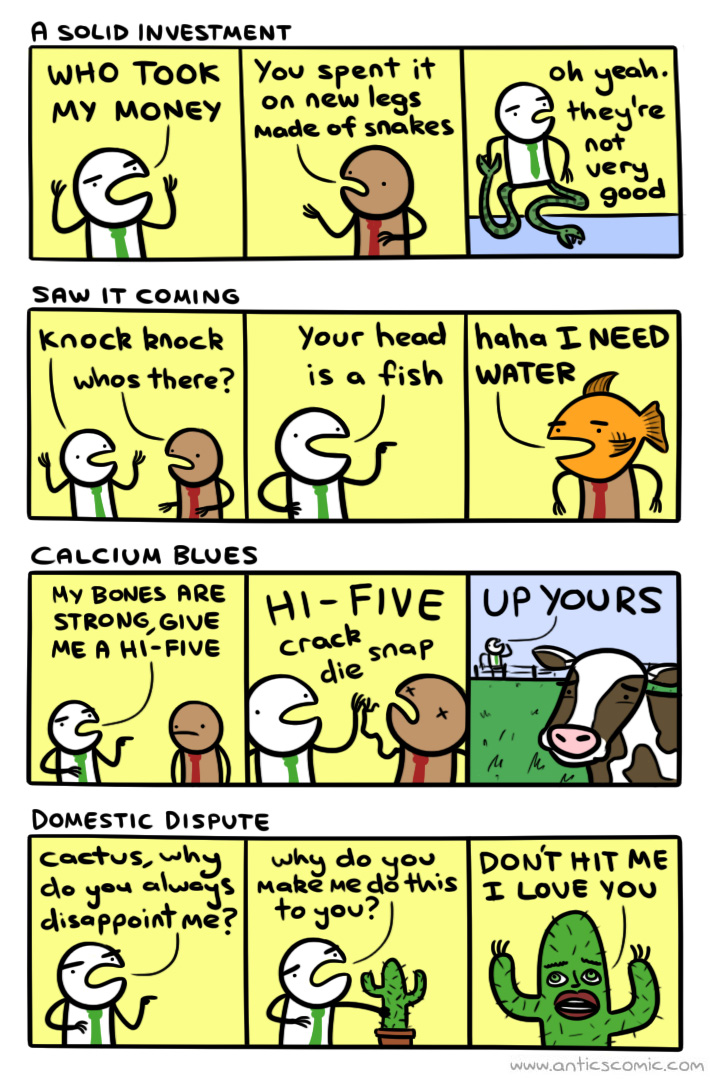 A SOLID INVESTMENT
WHO TOOK
MY MONEY
You spent it
on new legs
Made of snakes
oh yeah.
they're
not
very
good
SAW IT COMING
Knock knock
whos there?
Your head
is a fish
haha I NEED
WATER
CALCIUM BLUES
MY BONES ARE
STRONG, GIVE
ME A HI-FIVE
HI-FIVE
crack
snap
die
UP YOURS
DOMESTIC DISPUTE
cactus, why
do you always
disappoint me?
why do you
Make Me do this
to you?
DON'T HIT ME
I LOVE YOU
www.anticscomic.com